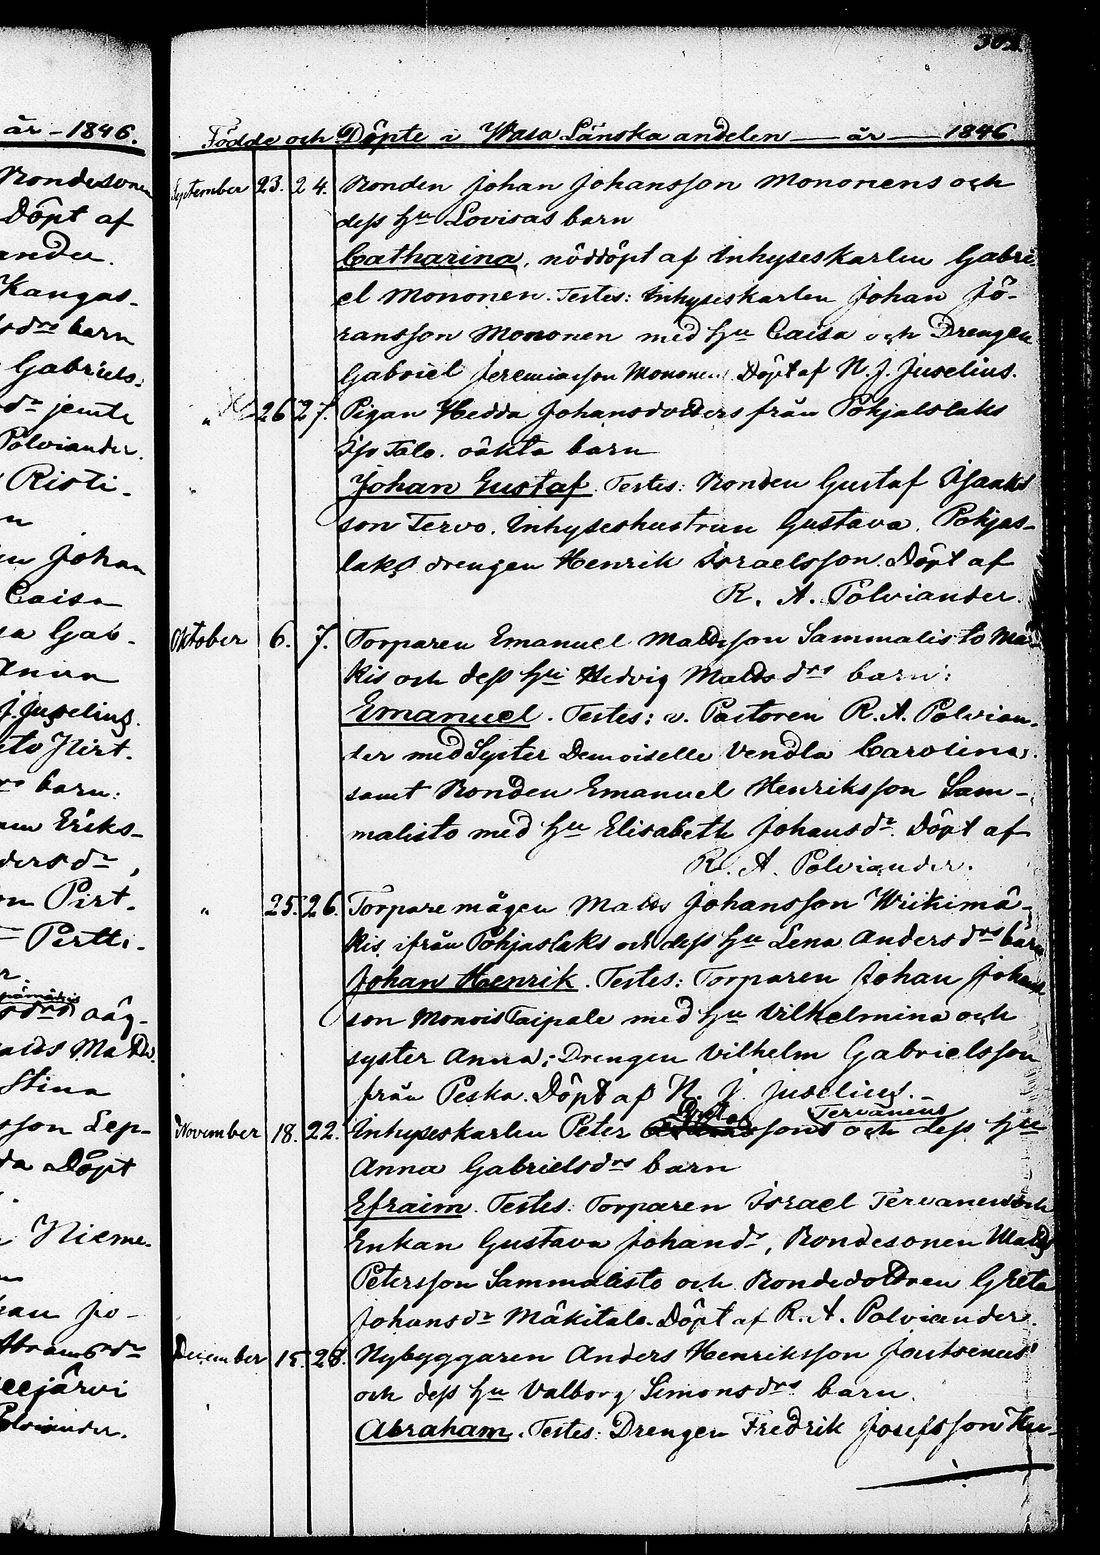 år - 1846.
Rondesonen
Döpt af
ander.
Kangas-
barn
Gabriels-
jemte
Polviander.
Risti-
Johan
Caisa
Gab-
Anna
J. Juselius.
barn:
Eriks-
Pirt-
Pertti-
Stina
Lep-
Döpt
Nieme-
Jo-
Polviander.
302.
Födde och Döpte i Wasa Länska andelen — år — 1846
September 23. 24. Bonden Johan Johansson Mononens och
dess Hu Lovisas barn
Catharina, nöddöpt af Inhyseskarlen Gabri-
el Mononen. Testes: Inhyseskarlen Johan Jö-
ransson Mononen med Hu Caisa och Drengen
Gabriel Jeremiasson Mononen Döpt af N. J. Juselius.
" 26 27. Pigan Hedda Johansdotters från Pohjalslaks
Iso Talo. oäkta barn
Johan Gustaf. Testes: Bonden Gustaf Isaaks
son Tervo. Inhyseshustrun Gustava. Pohjas-
laks drengen Henrik Israelsson. Döpt af
R. A. Polviander.
Oktober 6. 7. Torparen Emanuel Mattsson Sammalisto Mä-
kis och dess Hu Hedvig Matts drs barn:
Emanuel. Testes: v. Pastoren R. A. Polvian-
der med Syster Demoiselle Vendla Carolina.
samt Bonden Emanuel Henriksson Sam-
malisto med Hu Elisabeth Johansdr. Döpt af
R. A. Polviander.
" 25. 26. Torpare mågen Matts Johansson Wiikimä-
kis ifrån Pohjaslaks och dess Hu Lena Anders drs barn
Johan Henrik. Testes: Torparen Johan Johans
son Monois Taipale med Hu Vilhelmina och
syster Anna; Drengen Vilhelm Gabrielsson
från Peska. Döpt af N. J. Juselius.
Tervanens
November 18. 22. Inhyseskarlen Peter sons och dess Hu
Anna Gabrielsdrs barn
Efraim. Testes: Torparen Israel Tervanen och
Enkan Gustava Johansdr, Bondesonen Matts
Petersson Sammalisto och Bondedottren Greta
Johansdr Mäkitalo. Döpt af R. A. Polviander.
December 15. 28. Nybyggaren Anders Henriksson Joutsenus'
och dess Hu Valborg Simonsdrs barn.
Abraham. Testes: Drengen Fredrik Josefsson Hu-